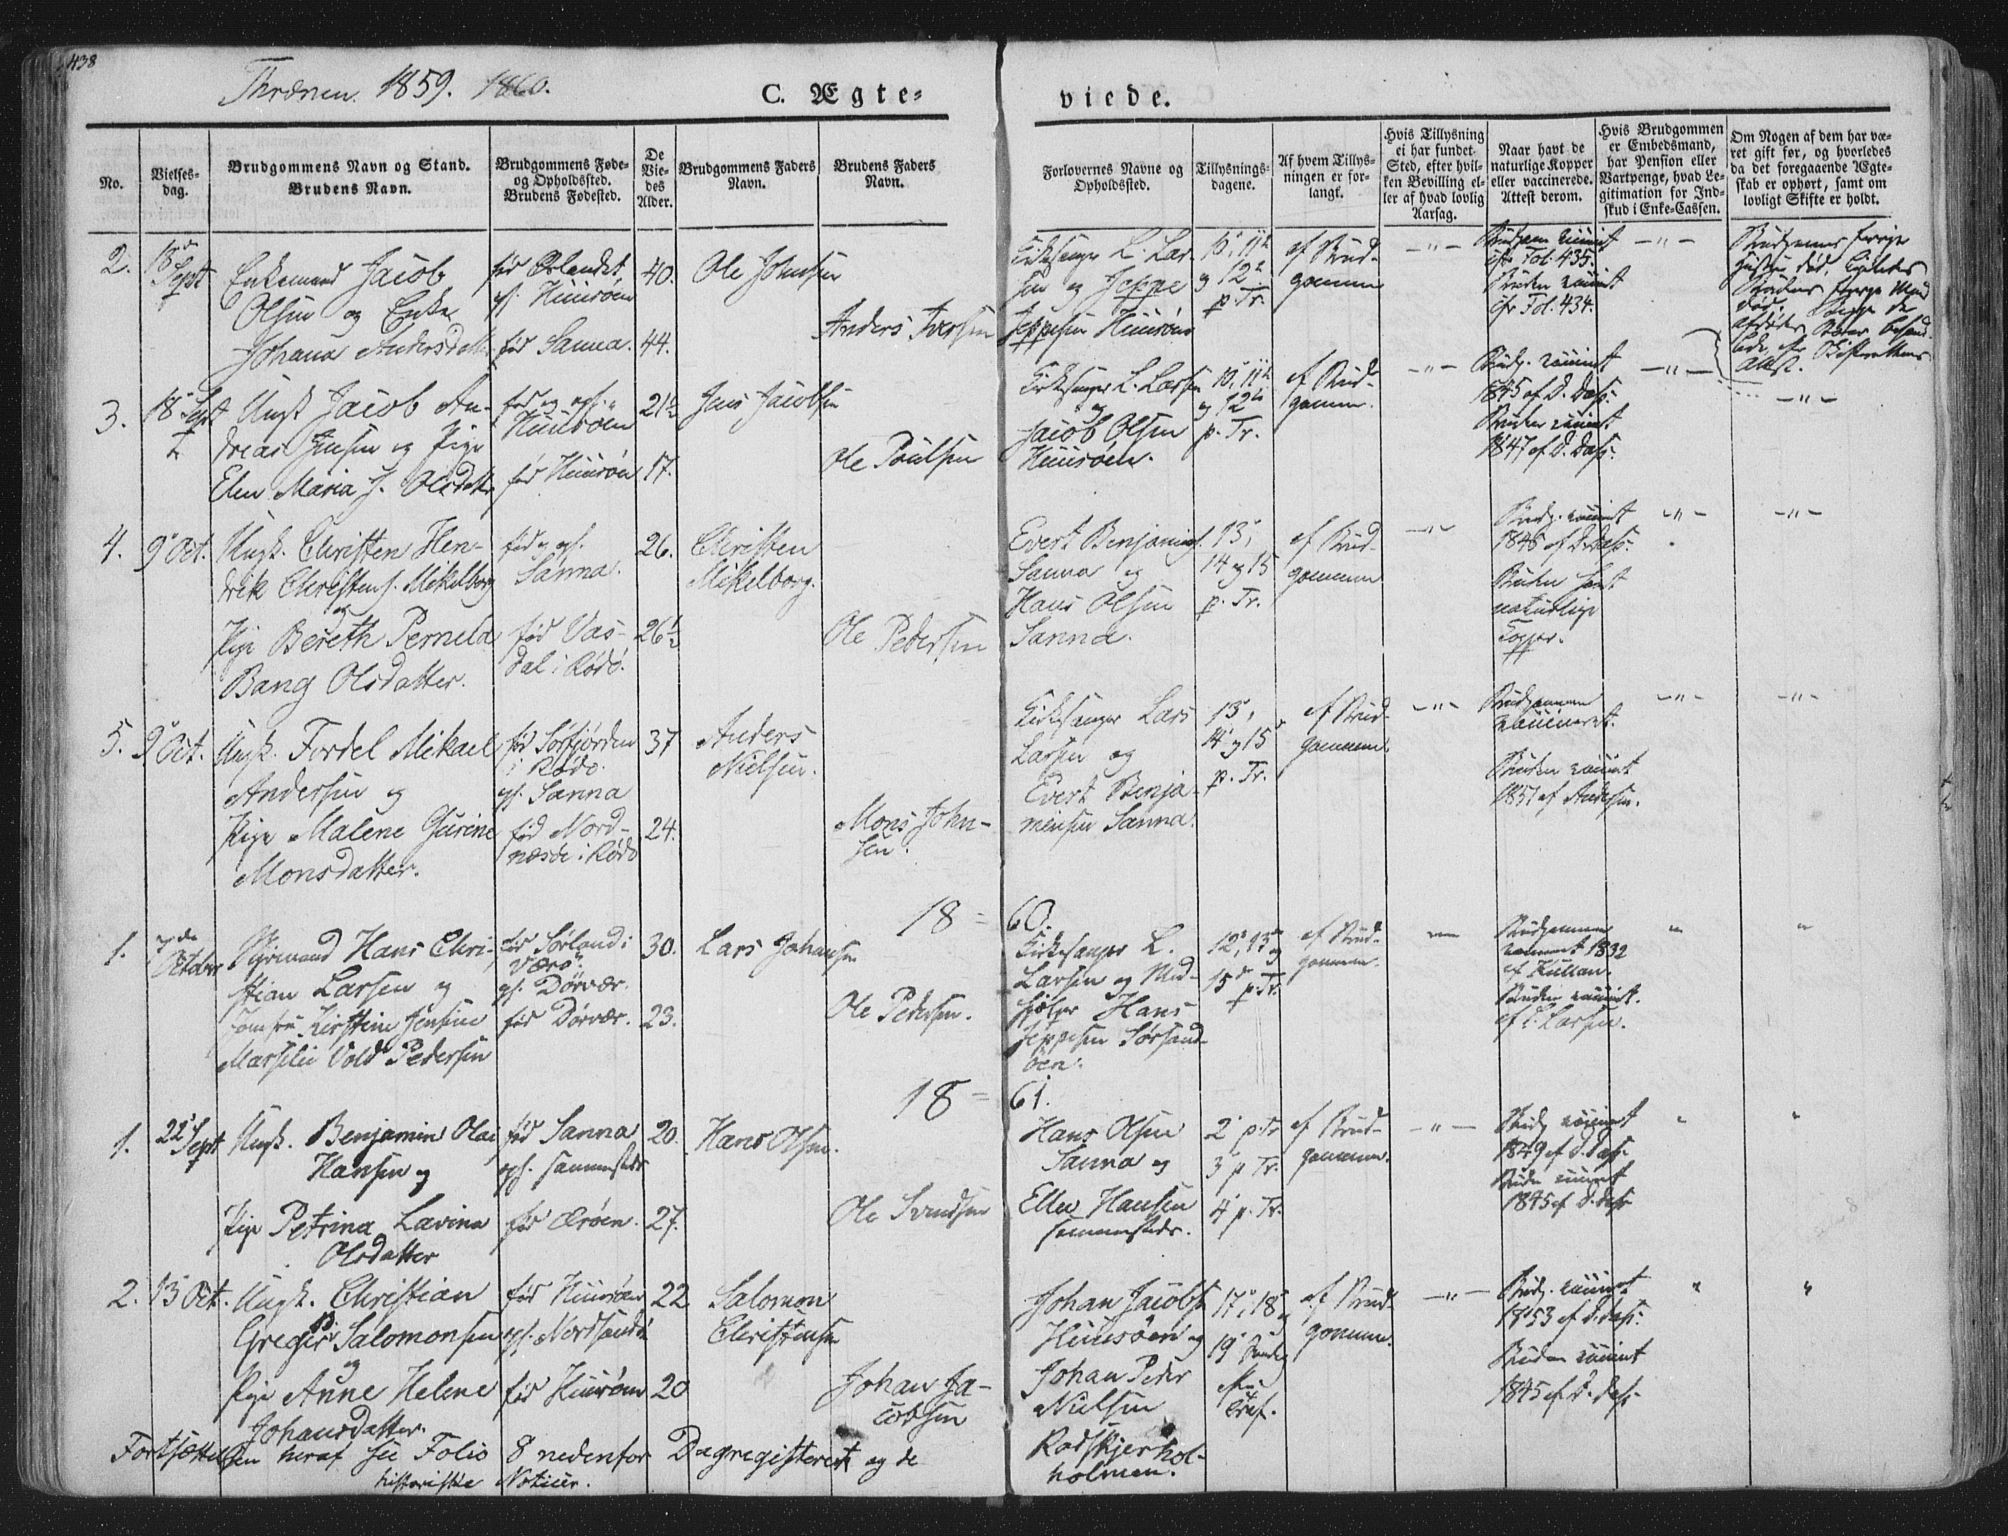 438
Thrænen. 1859. 1860.
C. Ægte=
viede.
No.
Vielses-
dag.
Brudgommens Navn og Stand.
Brudens Navn.
Brudgommens Føde-
og Opholdssted.
Brudens Fødested.
De
Vie-
des
Alder.
Brudgommens Faders
Navn.
Brudens Faders
Navn.
Forlovernes Navne og
Opholdssted.
Tillysnings-
dagene.
Af hvem Tillys-
ningen er for-
langt.
Hvis Tillysning
ei har fundet
Sted, efter hvil-
ken Bevilling el-
ler af hvad lovlig
Aarsag.
Naar havt de
naturlige Kopper
eller vaccinerede.
Attest derom.
Hvis Brudgommen
er Embedsmand,
har Pension eller
Vartpenge, hvad Le-
gitimation for Ind-
skud i Enke-Cassen.
Om Nogen af dem har væ-
ret gift før, og hvorledes
da det foregaaende Ægte-
skab er ophørt, samt om
lovligt Skifte er holdt.
2.
18de
Sept
Enkemand Jacob
Olsen og Enke
Johana Andersdatt.
fød Ørlandet
opf. Huusøen
fød Sanna.
40.
44.
Ole Johnsen
Anders Iversen
Kirkesanger L. Lar-
sen og Jeppe
Jeppesen Huusøen
10, 11te
og 12te
p. Tr.
af Brud-
gommen
cfr Fol. 435.
Bruden vaccint
cfr Fol. 434.
3.
18 Sept
Ungk. Jacob An-
dreas Jensen og Pige
Elen Maria J. Olsdatter
fød og opf.
Huusøen
fød Huusøen
21½
17.
Jens Jacobsen
Ole Poulsen
Kirkesanger L. Larsen
og
Jacob Olsen
Huusøen.
10, 11te
og 12te
p. Tr.
af Brud-
gommen.
Brudg. vaccint
1845 af D. Dass:
Bruden vaccint
1847 af D. Dass:
4.
9 Oct.
Ungk. Christen Hen-
drik Christens. Mikelborg
og
Pige Bereth Pernela
Bang Olsdatter.
fød og opf.
Sanna.
fød Vas-
dal i Rødø.
26.
26½
Christen
Mikelborg.
Ole Pedersen
Evert Benjamins.
Sanna og
Hans Olsen
Sanna.
13,
14 og 15
p. Tr.
af Brud-
gommen
Brudg. vaccint
1845 af D. Dass:
Bruden havt
naturlige
Kopper.
5.
9 Oct.
Ungk. Fordel Mikael
Andersen og
Pige Malene Gurine
Monsdatter.
fød Sørfjorden
i Rødø.
opf. Sanna
fød Nord-
næsøe i Rødø
37
24.
Anders
Nielsen.
Mons John-
sen.
Kirkesanger Lars
Larsen og
Evert Benja-
minsen Sanna.
13,
14 og 15
p. Tr.
af Brud-
gommen.
Brudgommen
vaccineret.
Bruden vaccint
1851 af Andersen.
18 = 60.
1.
7de
October
Styrmand Hans Chri-
stian Larsen og
Jomfru Kirstine Jensine
Marselie Vold Pedersen
fød Sørland i
Værø.
opf. Dørvær.
fød Dørvær.
30.
23.
Lars Johansen
Ole Pedersen.
Kirkesanger L.
Larsen og Med-
hjælper Hans
Jeppesen Sørsand-
øen.
af Brud-
gommen.
Brudgommen
vaccint 1832
Bruden vaccint.
af L. Larsen.
18 = 61.
1.
22 Sept
Ungk. Benjamin Olai
Hansen og
Pige Petrina Lavina
Olsdatter
fød Sanna
opf. sammesteds
20.
27.
Hans Olsen.
Ole Svendsen
Hans Olsen
Sanna og
Hansen
sammesteds.
2 p Tr
3 p Tr.
4 p. Tr.
af Brud-
gommen.
Brudg. vaccint
1849 af D. Dass:
Bruden vaccint
1845 af D. Dass
2.
13 Oct.
Ungk. Christian
Greger Salomonsen
og
Pige Anne Helene
Johansdatter.
fød Huusøen
opf. Nordsandø
fød Huusøen
22
20
Salomon
Christensen
Johan Ja-
cobsen
Johan Jacobsen
Huusøen og
Johan Peder
Nielsen
Rødskjerhol-
holmen.
17, 18 og
19 Søndag
Tref.
af Brud-
gommen.
Brudg. vaccint
1853 af D. Dass:
Bruden vaccint
1845 af D. Dass
Fortsættelsen heraf see Folio 8 nedenfor Dagregisteret og de
historiske Noticer.